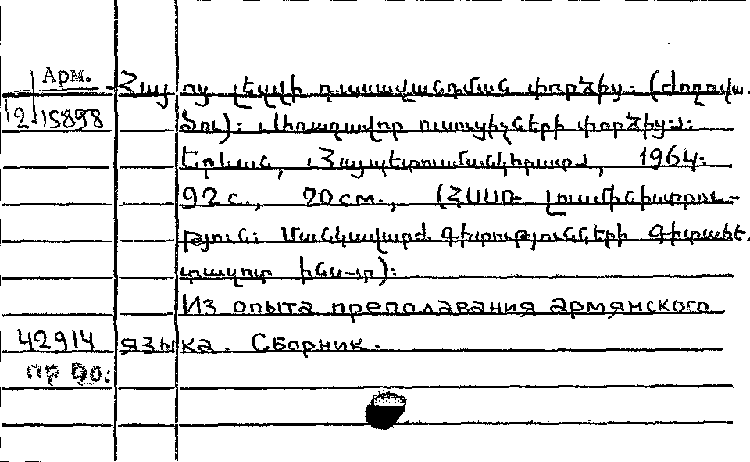 Арм.
12 15898
Հայոց լեզվի դասավանդման փորձից. (Ժողովա-
ծու): Առաջավոր ուսուցիչների փորձից:
Երևան, Հայպետուսմանկհրատ, 1964.
92 с., 20 см., (ՀՍՍՌ Լուսմինիստրու-
թյուն: Մանկավարժ. գիտությունների գիտահե-
տազոտ ինս-տ):
Из опыта преподавания армянского
42914 языка. Сборник.